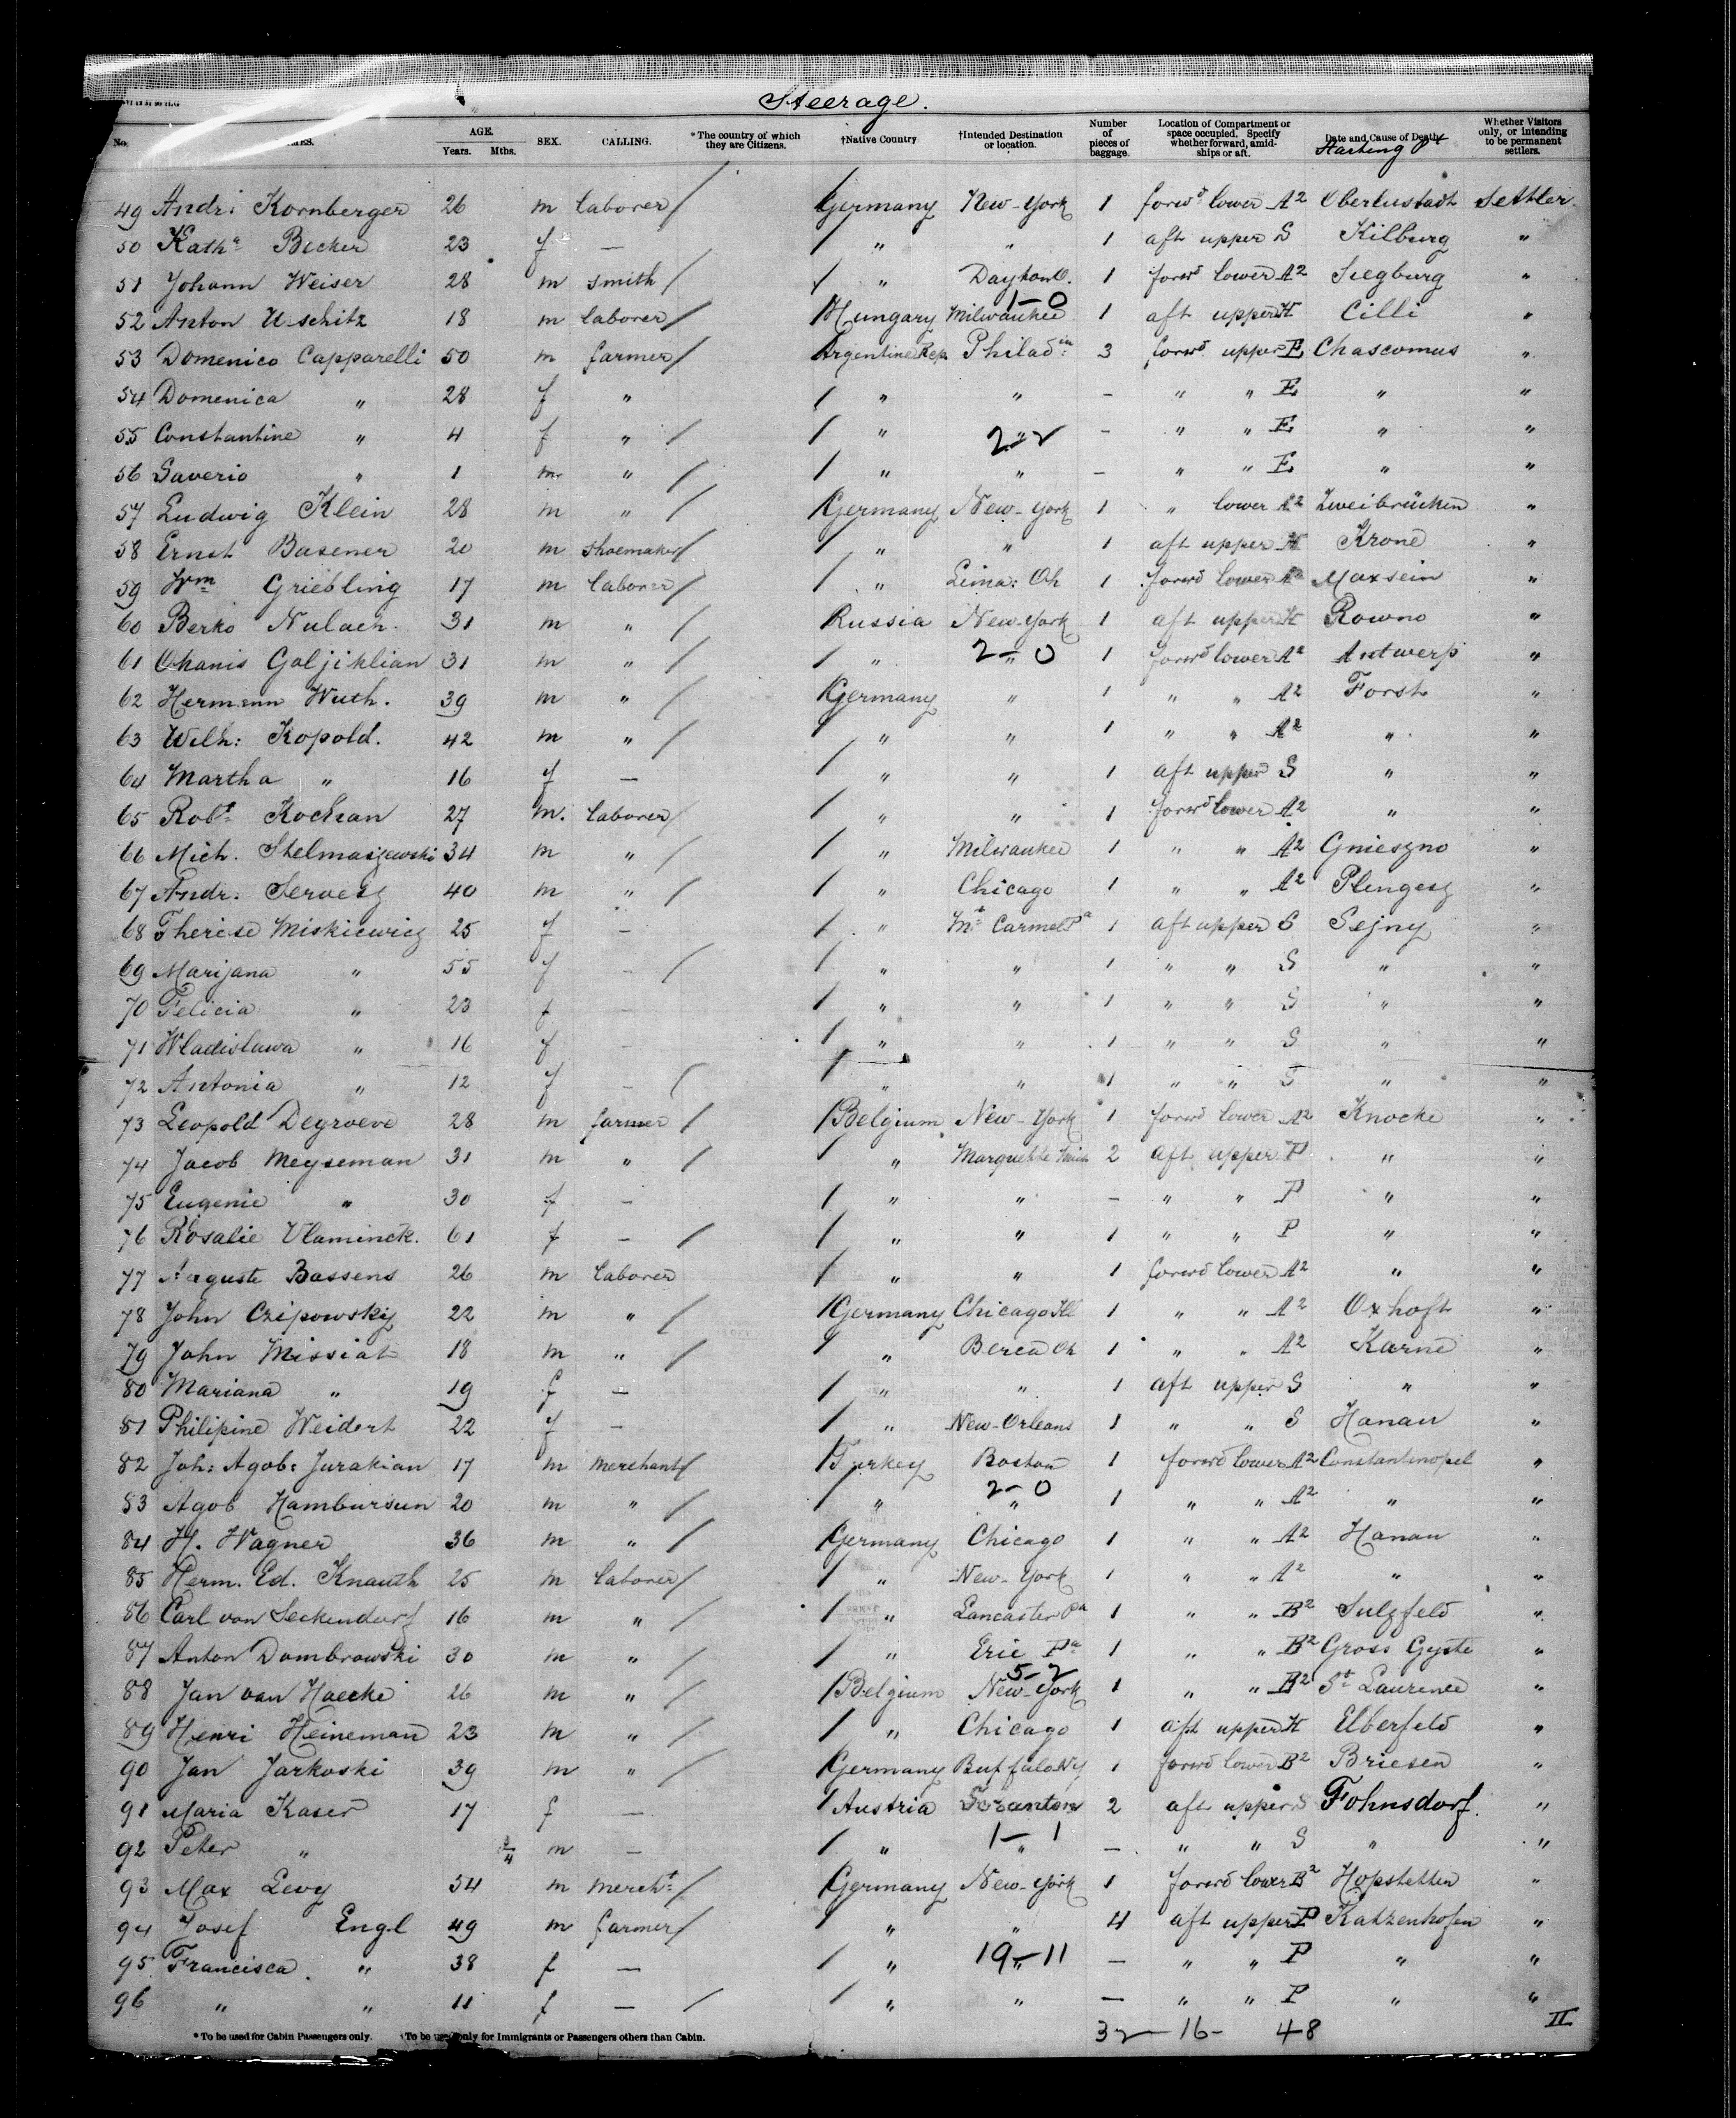 Steerage.
No. AGE. Years. Mths. SEX. CALLING. *The country of which they are Citizens. †Native Country †Intended Destination or location. Number of pieces of baggage. Location of Compartment or space occupied. Specify whether forward, amidships or aft. Date and Cause of Death. Starting Pt Whether Visitors only, or intending to be permanent settlers.
49 Andr: Kornberger 26 m laborer / Germany New-York 1 forwd lower A2 Oberlustadt Settler.
50 Katha Becker 23 f — / " " 1 aft upper S Kilburg "
51 Johann Weiser 28 m smith / / " Dayton O. 1 forwd lower A2 Siegburg "
1-0
52 Anton Uschitz 18 m laborer / / Hungary Milwaukee 1 aft upper H Cilli "
53 Domenico Capparelli 50 m farmer / Argentine Rep. Philadia: 3 forwd upper E Chascomus "
54 Domenica " 28 f " / " " - " " E " "
55 Constantine " 4 f " / / " " - " " E " "
2-2
56 Saverio " 1 m. " / / " " - " " E " "
57 Ludwig Klein 28 m " / / Germany New-York 1 " lower A2 Zweibrücken "
58 Ernst Basener 20 m shoemaker / / " " 1 aft upper H Krone "
59 Wm Griebling 17 m laborer / / " Lima: Oh 1 forwd lower A2 Maxsein "
60 Berko Nulach. 31 m " / Russia New-York 1 aft upper H Rowno "
61 Ohanis Goljiklian 31 m " / / " " 1 forwd lower A2 Antwerp "
2-0
62 Hermann Wuth. 39 m " / / Germany " 1 " " A2 Forst "
63 Wilh: Kopold. 42 m " / / " " 1 " " A2 " "
64 Martha " 16 f — / " " 1 aft upper S " "
65 Robt: Kochan 27 m. laborer / / " " 1 forwd lower A2 " "
66 Mich. Stelmaszewski 34 m " / / " Milwaukee 1 " " A2 Gnieszno "
67 Andr: Servesz 40 m " / / " Chicago 1 " " A2 Plengesz "
68 Therese Miskiewicz 25 f - / " Mt Carmel Pa 1 aft upper S Sejny "
69 Marijana " 55 f - / / " " 1 " " S " "
70 Felicia " 23 f - / " " 1 " " S " "
71 Wladislawa " 16 f - / " " 1 " " S " "
72 Antonia " 12 f - / / " " 1 " " S " "
73 Leopold Degroeve 28 m farmer / / Belgium New-York 1 forwd lower A2 Knocke "
74 Jacob Meyseman 31 m " / / " Marquette Mich 2 aft upper P " "
75 Eugenie " 30 f - / " " - " " P " "
76 Rosalie Vlaminck. 61 f - / / " " 1 " " P " "
77 Auguste Bassens 26 m laborer / " " 1 forwd lower A2 " "
78 John Czipowskij 22 m " / / Germany Chicago Ill 1 " " A2 Oxhoft "
79 John Missiat 18 m " / / " Berea Oh 1 " " A2 Karne "
80 Mariana " 19 f — / " " 1 aft upper S " "
81 Philipine Weidert 22 f — / " New-Orleans 1 " " S Hanau "
82 Joh: Agob: Jurakian 17 m merchant / / Turkey Boston 1 forwd lower A2 Constantinopel "
2-0
83 Agob Hambursun 20 m " / / " " 1 " " A2 " "
84 H. Wagner 36 m " / / Germany Chicago 1 " " A2 Hanau "
85 Herm. Ed. Knauth 25 m laborer / / " New-York 1 " " A2 " "
86 Carl von Seckendorf 16 m " / / " Lancaster Pa 1 " " B2 Sulzfeld "
87 Anton Dombrowski 30 m " / / " Erie Pa 1 " " B2 Gross Gyste "
5-2
88 Jan van Haecke 26 m " / / Belgium New-York 1 " " B2 St Laurence "
89 Henri Heineman 23 m " / / " Chicago 1 aft upper H Elberfeld "
90 Jan Jarkoski 39 m " / / Germany Buffalo NY 1 forwd lower B2 Briesen "
91 Maria Kaser 17 f — / Austria Scranton 2 aft upper S Fohnsdorf. "
1-1
92 Peter " m — / " " — " " S " "
93 Max Levy 54 m mercht: / / Germany New-York 1 forwd lower B2 Hopstetten "
94 Josef Engl 49 m farmer / / " " 4 aft upper P Katzenhofen "
19-11
95 Francisca. " 38 f — / " " — " " P " "
96 " " 11 f — / / " " — " " P " "
32 - 16 - 48 II
*To be used for Cabin Passengers only. †To be used only for Immigrants or Passengers others than Cabin.